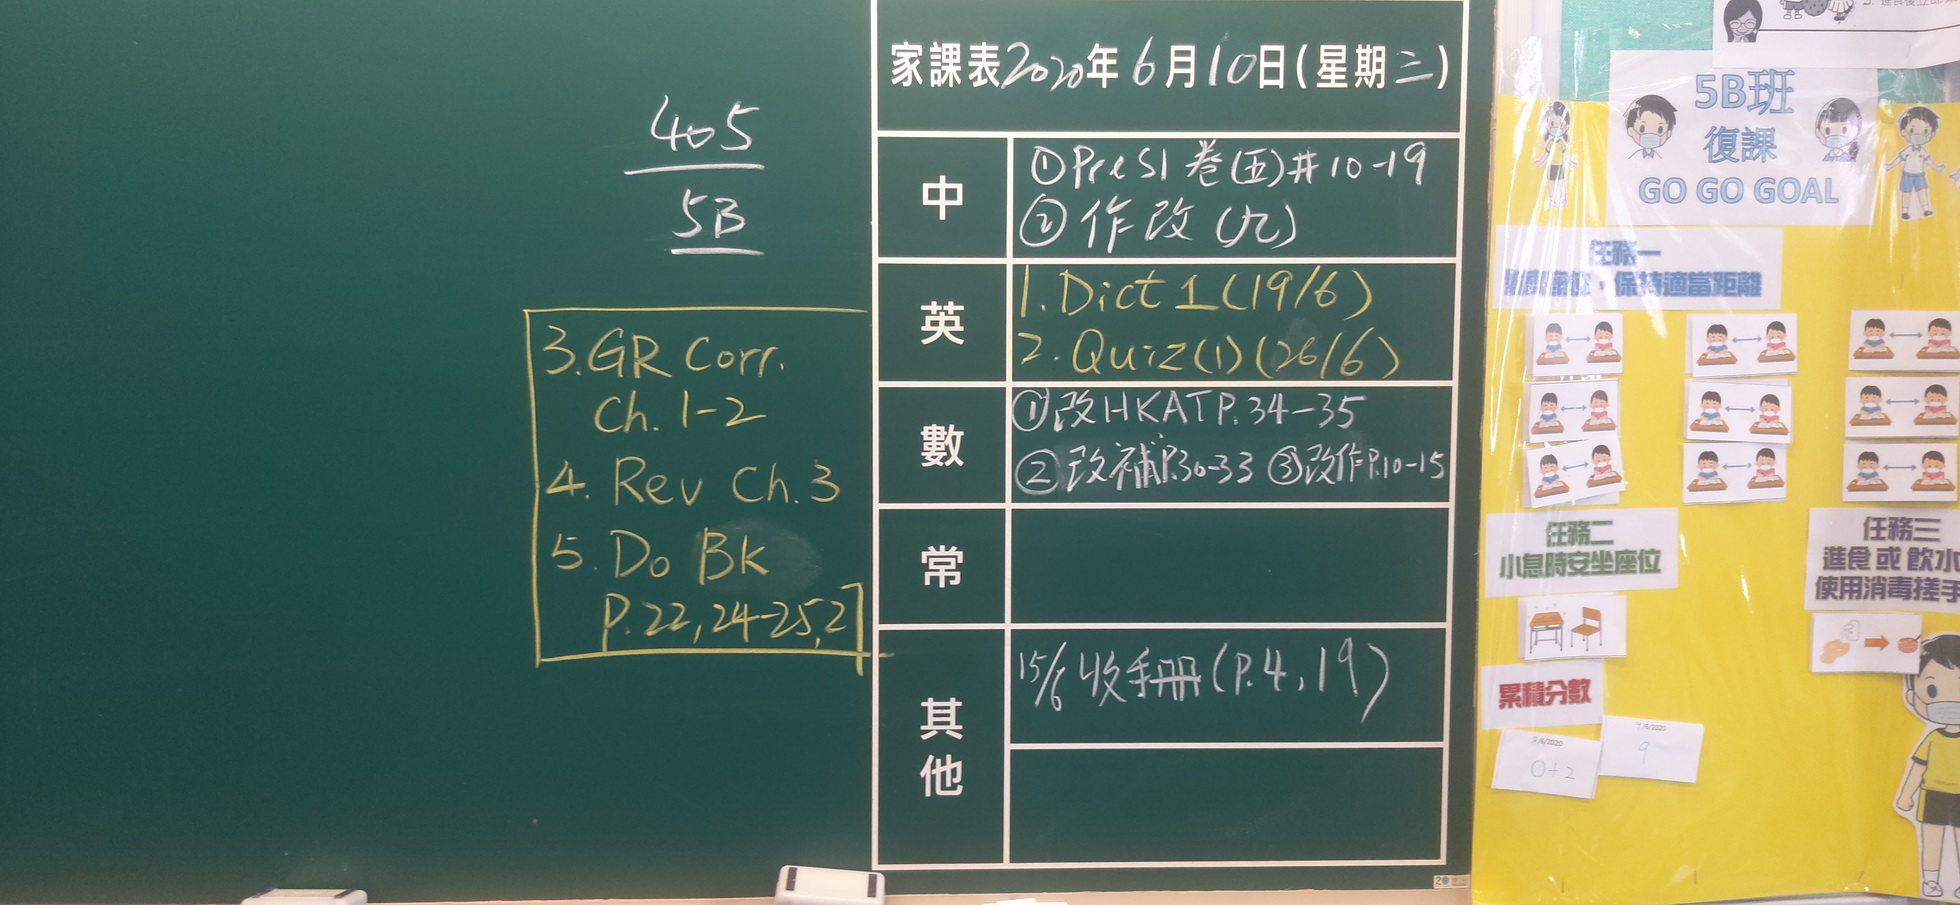 家課表2020年6月10日(星期三)
405
5B
中
①PreS1 卷(五)#10-19
②作改(九)
英
1.Dict 1(19/6)
2.Quiz(1)(26/6)
3.GR Corr.
Ch.1-2
4. Rev Ch.3
5.Do BK
P.22,24-25,27
數
①改HKAT P.34-35
②改補P.30-33 ③改作P.10-15
常
其他
15/6收手冊(P.4,19)
5B班
復課
GO GO GOAL
任務一
保持適當距離
任務二
小息時安坐座位
任務三
進食或飲水
使用消毒搓手
累積分數
0+2
9